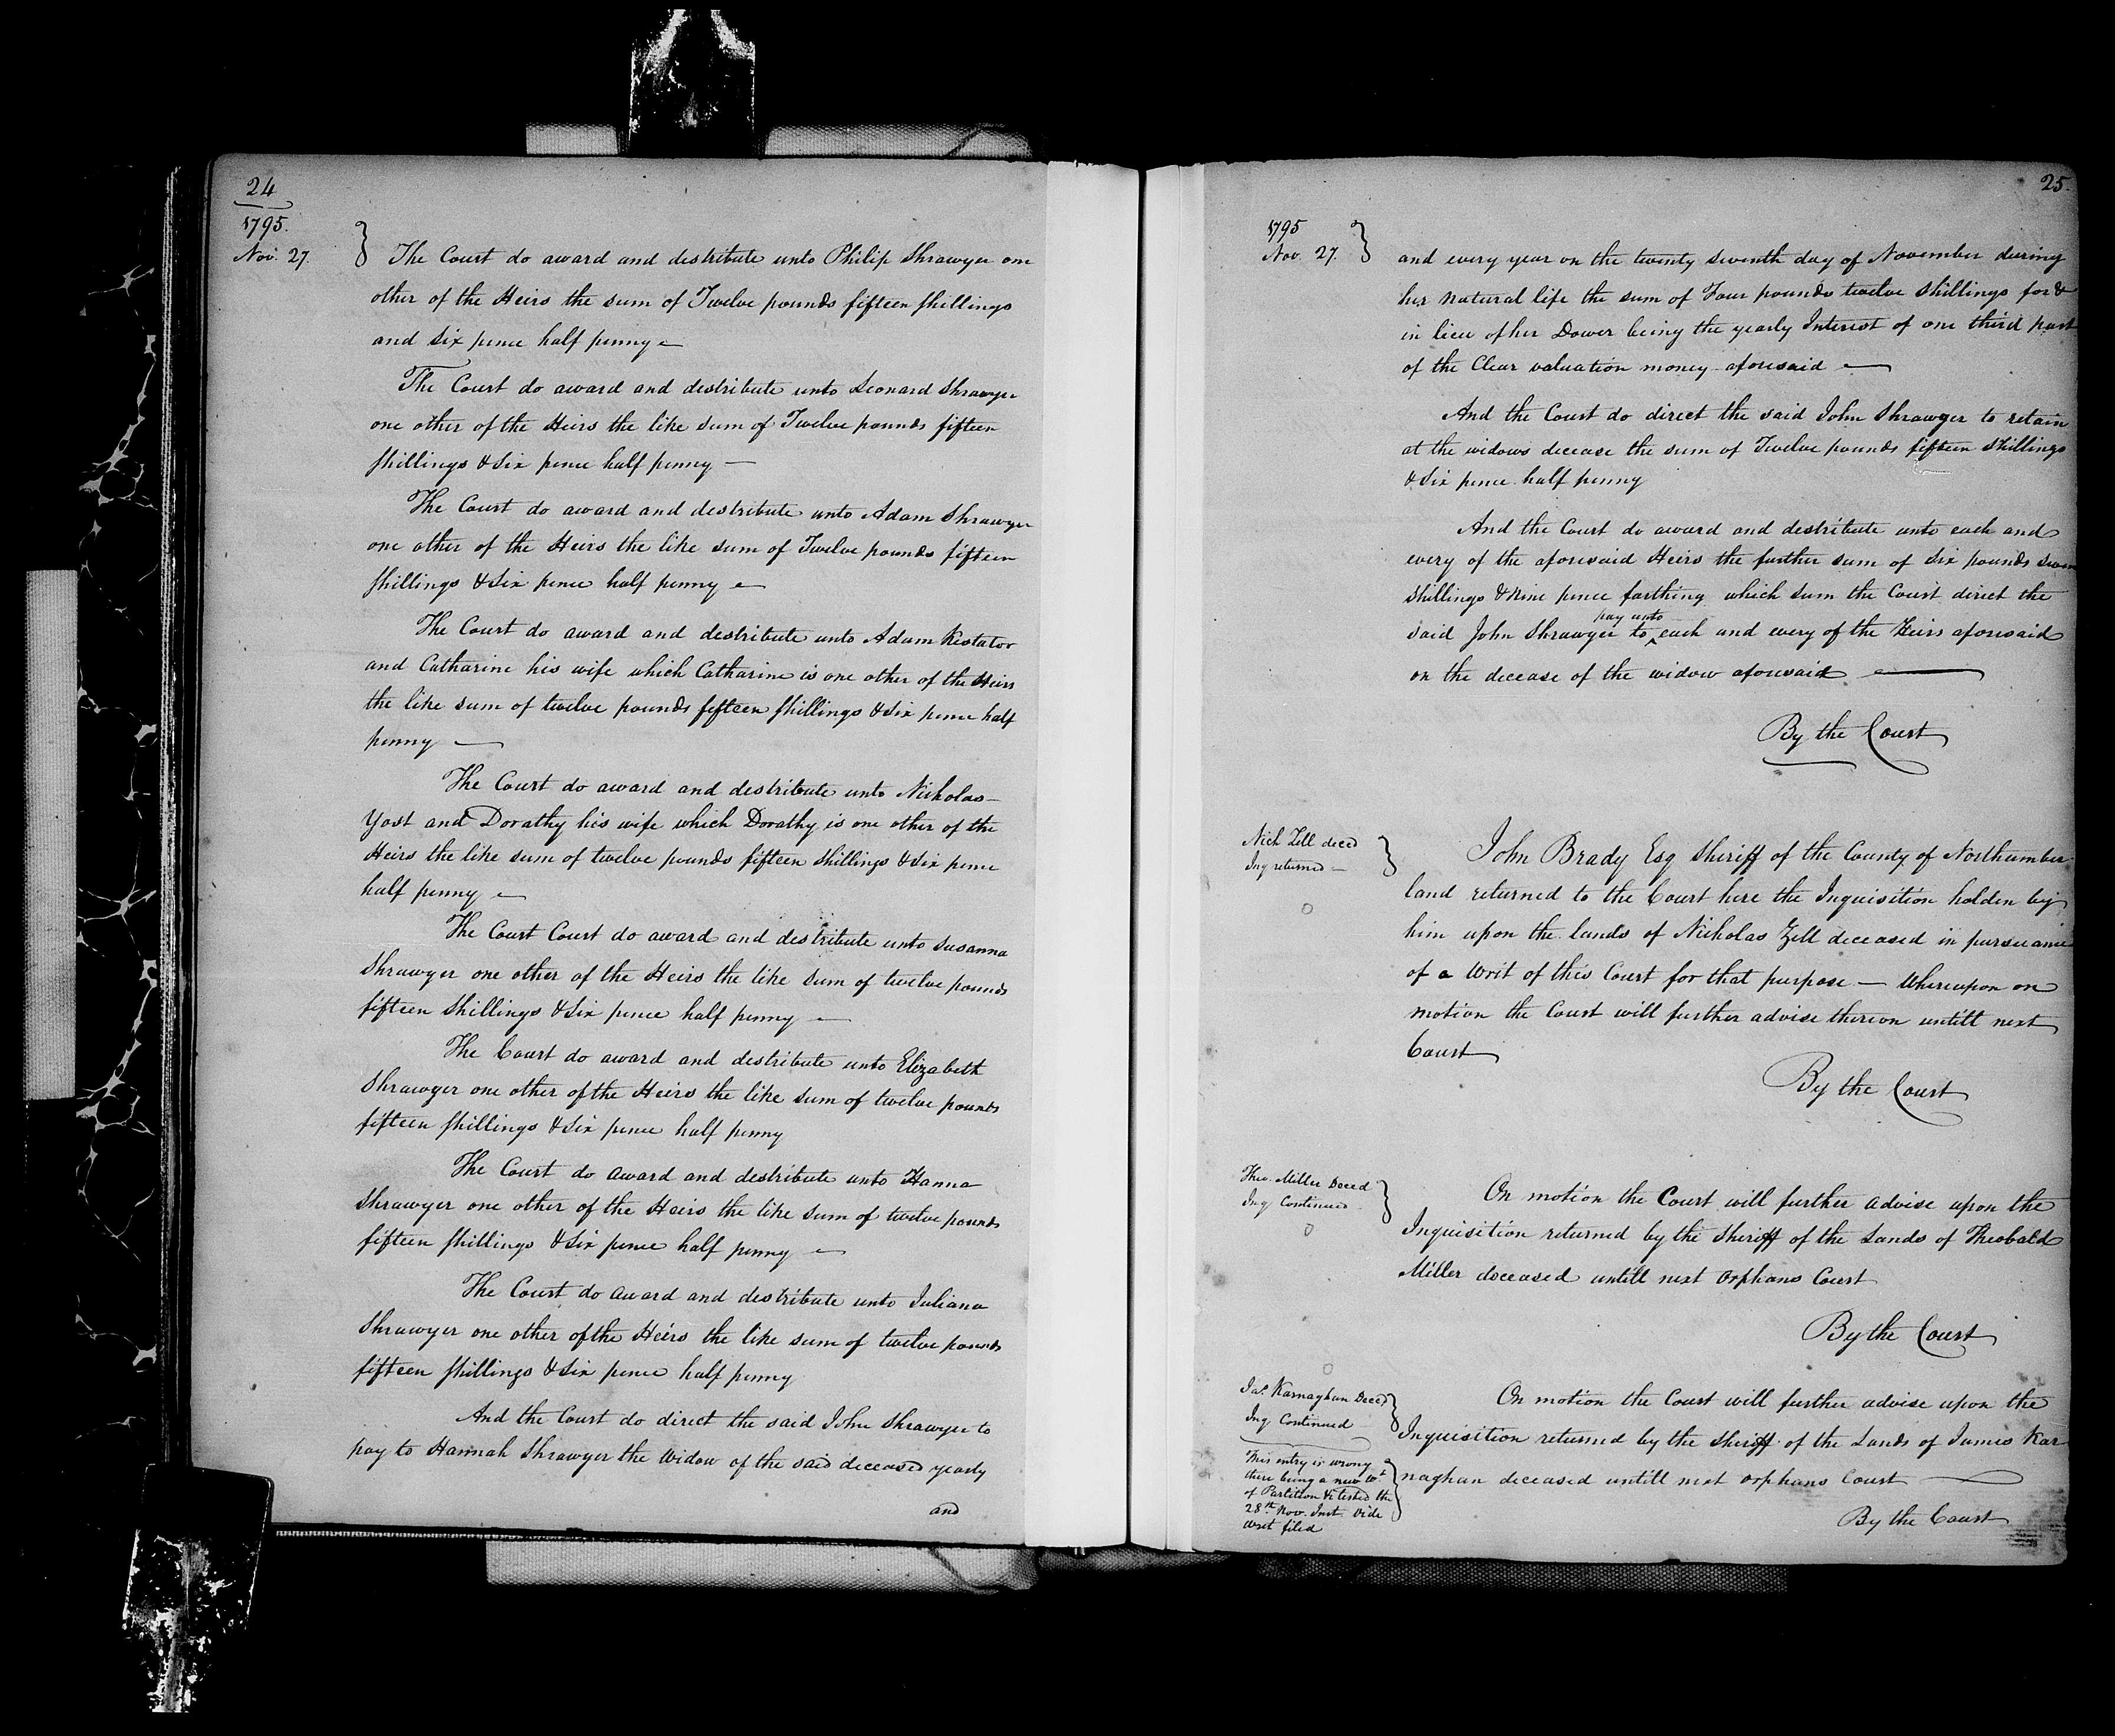 24
1795.
Nov. 27.
The Court do award and destribute unto Philip Shrawyer one
other of the Heirs the sum of Twelve pounds fifteen shillings
and six pence half penny
The Court do award and destribute unto Leonard Shrawyer
one other of the Heirs the like sum of Twelve pounds fifteen
shillings & Six pence half penny —
The Court do award and destribute unto Adam Shrawyer
one other of the Heirs the like sum of Twelve pounds fifteen
shillings & Six pence half penny
The Court do award and destribute unto Adam Kestator
and Catharine his wife which Catharine is one other of the Heirs
the like sum of twelve pounds fifteen shillings & Six pence half
penny —
The Court do award and destribute unto Nicholas
Yost and Dorathy his wife which Dorathy is one other of the
Heirs the like sum of twelve pounds fifteen shillings & Six pence
half penny
The Court Court do award and destribute unto Susanna
Shrawyer one other of the Heirs the like sum of twelve pounds
fifteen shillings & Six pence half penny —
The Court do award and destribute unto Elizabeth
Shrawyer one other of the Heirs the like sum of twelve pounds
fifteen shillings & Six pence half penny
The Court do award and destribute unto Hanna
Shrawyer one other of the Heirs the like sum of twelve pounds
fifteen shillings & Six pence half penny —
The Court do award and destribute unto Juliana
Shrawyer one other of the Heirs the like sum of twelve pounds
fifteen shillings & Six pence half penny
And the Court do direct the said John Shrawyer to
pay to Hannah Shrawyer the Widow of the said deceased yearly
and
25.
1795
Nov. 27.
and every year on the twenty seventh day of November during
her natural life the sum of Four pounds twelve shillings for &
in lieu of her Dower being the yearly Interest of one third part
of the Clear valuation money aforesaid —
And the Court do direct the said John Shrawyer to retain
at the widows decease the sum of Twelve pounds fifteen shillings
& Six pence half penny
And the Court do award and destribute unto each and
every of the aforesaid Heirs the further sum of Six pounds seven
shillings & nine pence farthing which sum the Court direct the
pay unto
said John Shrawyer to ‸ each and every of the Heirs aforesaid
on the decease of the widow aforesaid —
By the Court
Nich Zell deced
Inq returned —
John Brady Esq Sheriff of the County of Northumber
land returned to the Court here the Inquisition holden by
him upon the lands of Nicholas Zell deceased in pursuance
of a Writ of this Court for that purpose — Whereupon on
motion the Court will further advise thereon untill next
Court
By the Court
Theo. Miller Deced
Inq Continued
On motion the Court will further advise upon the
Inquisition returned by the Sheriff of the Lands of Theobald
Miller deceased untill next Orphans Court
By the Court
Jas. Karnaghan Deced
Inq Continued
On motion the Court will further advise upon the
Inquisition returned by the Sheriff of the Lands of James Kar
naghan deceased untill next Orphans Court —
By the Court
This entry is wrong
there being a new Wt
of Partition & tested the
28th Nov. Inst. Vide
Writ filed